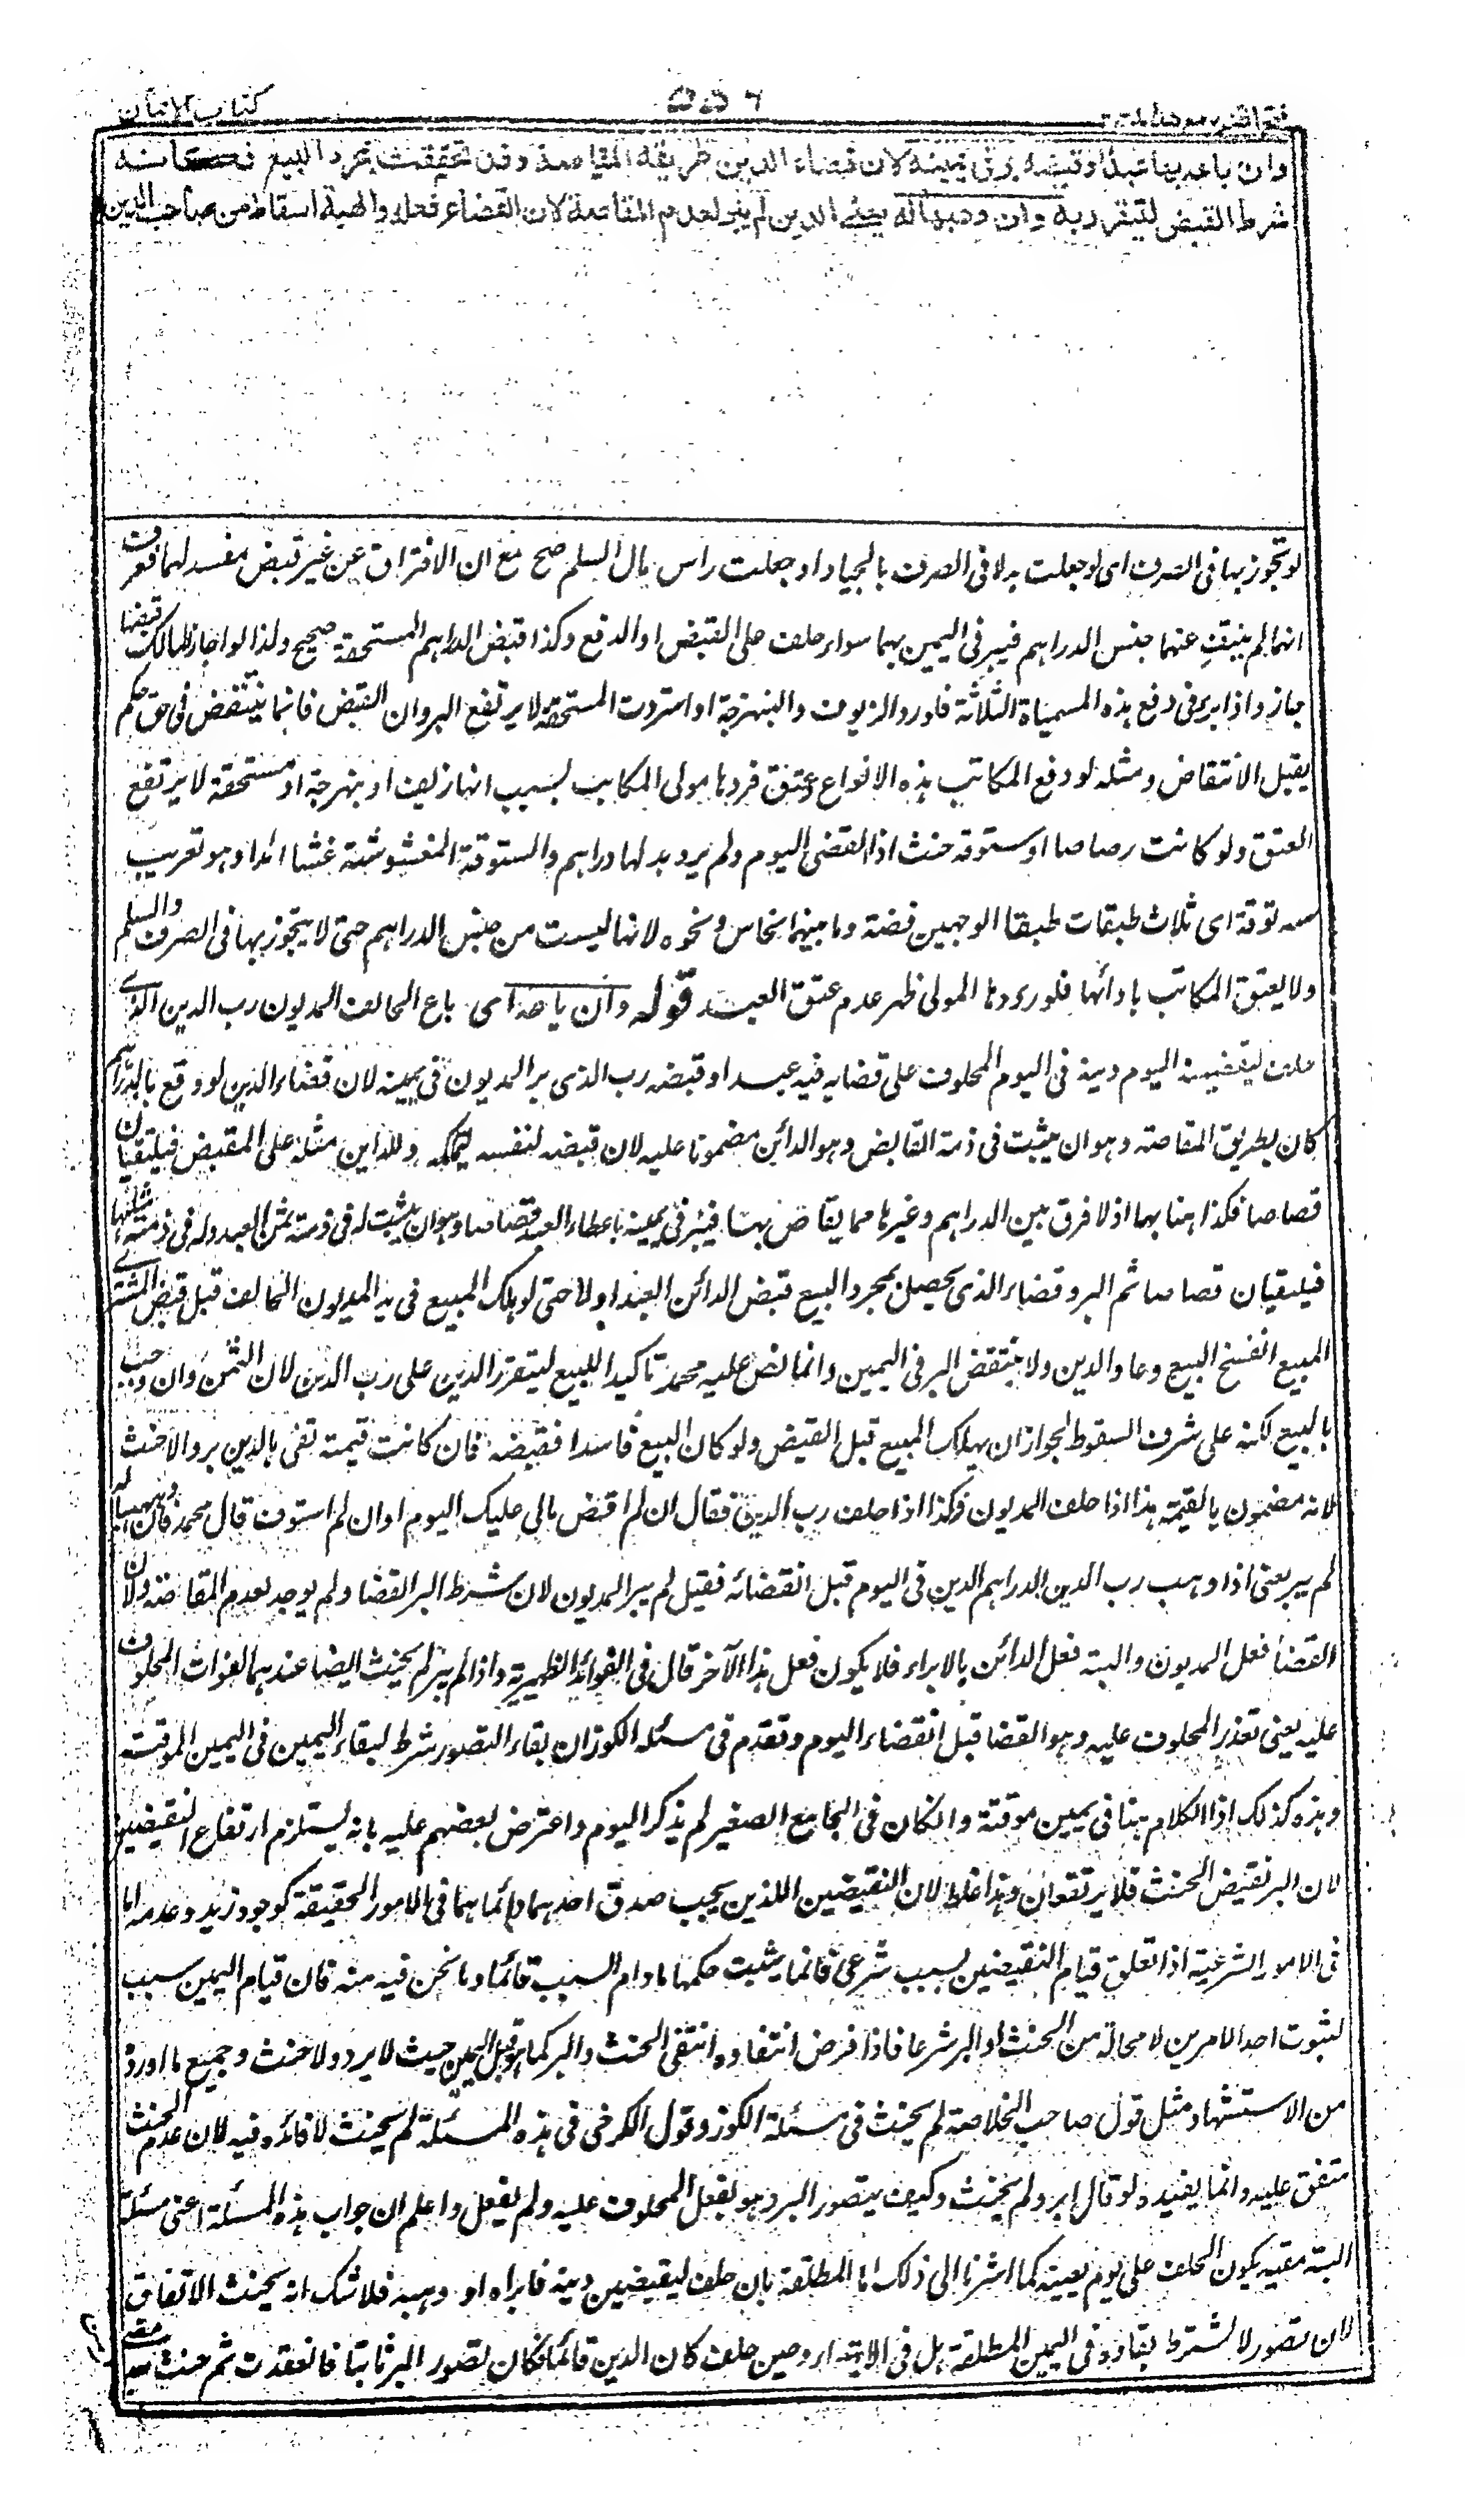 كتاب الايمان
٥٥٦
فتح القدير مع هداية
وان باعه بها عبدا وقبضه بر في يمينه لان قضاء الدين طريقه المقاصة وقد تحققت بمجرد البيع فكانه
شرط القبض ليتقرر به وان وهبها له يعني الدين لم يبر لعدم المقاصة لان القضاء فعله والهبة اسقاط من صاحب الدين
لو تجوز بها فى الصرف اى لو جعلت بدلا فى الصرف بالجياد او جعلت راس مال السلم صح مع ان الافتراق عن غير قبض مفسد لهما فعرف
انها لم ينتف عنها جنس الدراهم فيبر فى اليمين بهما سواء حلف على القبض او الدفع وكذا قبض الدراهم المستحقة صحيح ولذا لو اجاز المالك قبضها
جاز واذا بر فى دفع هذه المسمياة الثلاثة فلو رد الزيوف والنبهرجة او استردت المستحقة لا يرتفع البر وان القبض فانما ينتقض فى حق حكم
يقبل الانتقاض ومثله لو دفع المكاتب هذه الانواع وعتق فردها مولى المكاتب بسبب انها زيف او نبهرجة او مستحقة لا يرتفع
العتق ولو كانت رصاصا او ستوقة حنث اذا انقضى اليوم ولم يرد بدلها دراهم والستوقة المغشوشة غشا زائدا وهو تعريب
سه توقة اى ثلاث طبقات طبقا الوجهين فضة وما بينهما نحاس ونحوه لانها ليست من جنس الدراهم حتى لا يتجوز بها فى الصرف والسلم
ولا يعتق المكاتب بادائها فلو ردها المولى ظهر عدم عتق العبد قوله وان باعه اى باع الحالف المديون رب الدين الذى
حلف ليقضينه اليوم دينه فى اليوم المحلوف على قضايه فيه عبدا وقبضه رب الذى بر المديون فى يمينه لان قضاء الدين لو وقع بالدراهم
كان بطريق المقاصة وهو ان يثبت فى ذمة القابض وهو الدائن مضمونا عليه لان قبضه لنفسه ليتملكه وللداين مثله على المقبض فيلتقيان
قصاصا فكذا هنا بهما اذ لا فرق بين الدراهم وغيرها مما يقاض بهنا فيبر فى يمينه باعطاء العبد قصاصا وهو ان يثبت له فى ذمته ثمن العبد وله فى ذمته مثلها
فيلتقيان قصاصا ثم البر وقضاء الذى يحصل بمجرد البيع قبض الدائن العبد او لا حتى لو هلك المبيع فى يد المديون الحالف قبل قبض المشترى
المبيع انفسخ البيع وعاد الدين ولا ينتقض البر فى اليمين وانما نص عليه محمد تاكيدا للبيع ليتقرر الدين على رب الدين لان الثمن وان وجب
بالبيع لكنه على شرف السقوط لجواز ان يهلك المبيع قبل القبض ولو كان البيع فاسدا فقبضه فان كانت قيمته تفى بالدين بر والا حنث
لانه مضمون بالقيمة هذا اذا حلف المديون وكذا اذا حلف رب الدين فقال ان لم اقبض مالى عليك اليوم او ان لم استوف قال محمد فان وهبها له
لم يبر يعنى اذا وهب رب الدين الدراهم الدين فى اليوم قبل انقضائه فقيل لم يبر المديون لان شرط البر القضا ولم يوجد لعدم المقاصة ولان
القضا فعل المديون والهبة فعل الدائن بالابراء فلا يكون فعل هذا الآخر قال فى الفوائد الظهيرية واذا لم يبر لم يحنث ايضا عندهما لفوات المحلوف
عليه يعنى تعذر المحلوف عليه وهو القضا قبل انقضاء اليوم وتقدم فى مسئلة الكوز ان بقاء التصور شرط لبقاء اليمين فى اليمين الموقتة
وهذه كذلك اذا الكلام هنا فى يمين موقتة وان كان فى الجامع الصغير لم يذكر اليوم واعترض بعضهم عليه بانه يستلزم ارتفاع النقيضين
لان البر نقيض الحنث فلا يرتفعان وهذا غلط لان النقيضين اللذين يجب صدق احدهما دائما هما فى الامور الحقيقة كوجود زيد وعدمه اما
فى الامور الشرعية اذا تعلق قيام النقيضين بسبب شرعى فانما يثبت حكمها مادام السبب قائما وما نحن فيه منه فان قيام اليمين سبب
لثبوت احد الامرين لا محالة من الحنث او البر شرعا فاذا فرض انتفاوه انتفى الحنث والبر كما هو قبل اليمين حيث لا بر ولا حنث وجميع ما اورد
من الاستشهاد مثل قول صاحب الخلاصة لم يحنث فى مسئلة الكوز وقول الكرخى فى هذه المسئلة لم يحنث لا فائدة فيه لان عدم الحنث
متفق عليه وانما يفيده لو قال بر ولم يحنث وكيف يتصور البر وهو بفعل المحلوف عليه ولم يفعل واعلم ان جواب هذه المسئلة اعنى مسئلة
الهبة مقيد بكون الحلف على يوم بعينه كما اشرنا الى ذلك اما المطلقة بان حلف ليقيضين دينه فابراه او وهبه فلا شك انه يحنث الاتفاق
لان تصور لا يشترط بقاوه فى اليمين المطلقة بل فى الابتداء وحين حلف كان الدين قائما فكان تصور البر ثابتا فانعقدت ثم حنث بعد